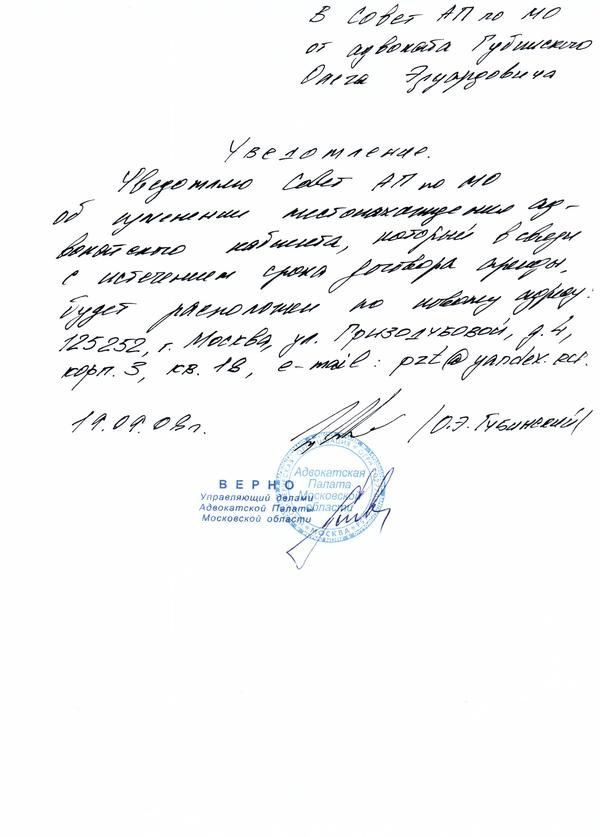 В Совет АП по МО
от адвоката Губинского
Олега Эдуардовича
Уведомление.
Уведомляю Совет АП по МО
об изменении местонахождения ад-
вокатского кабинета, который в связи
с истечением срока договора аренды,
будет расположен по новому адресу:
125252, г. Москва, ул. Гризодубовой, д. 4,
корп. 3, кв. 18, e-mail: pzt@yandex.ru.
19.09.08г.
/О.Э. Губинский/
ВЕРНО
Управляющий делами
Адвокатской Палаты
Московской области
Адвокатская
Палата
Московской
области
МОСКВА